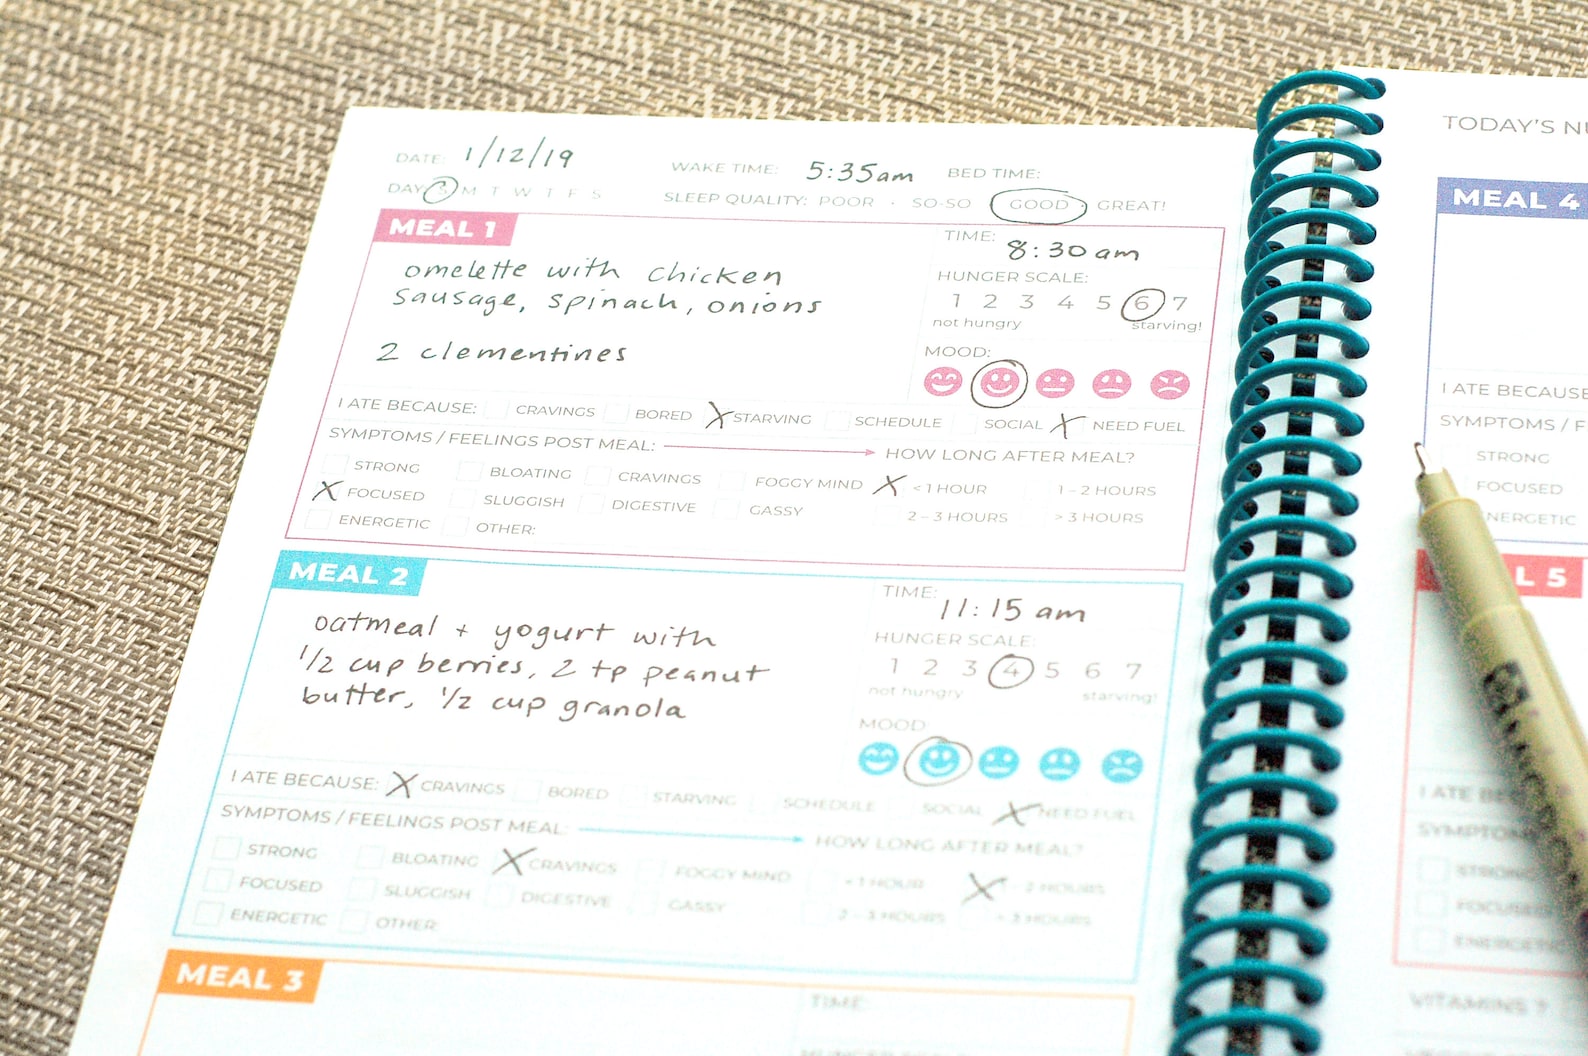 DATE: 1/12/19 WAKE TIME: 5:35am BED TIME:
DAY: S M T W T F S SLEEP QUALITY: POOR · SO-SO · GOOD · GREAT!
MEAL 1
TIME: 8:30am
omelette with chicken
sausage, spinach, onions
2 clementines
HUNGER SCALE:
1 2 3 4 5 6 7
not hungry starving!
MOOD:
I ATE BECAUSE: CRAVINGS BORED X STARVING SCHEDULE SOCIAL X NEED FUEL
SYMPTOMS / FEELINGS POST MEAL: HOW LONG AFTER MEAL?
STRONG BLOATING CRAVINGS FOGGY MIND X < 1 HOUR 1 - 2 HOURS
X FOCUSED SLUGGISH DIGESTIVE GASSY 2 - 3 HOURS > 3 HOURS
ENERGETIC OTHER:
MEAL 2
TIME: 11:15 am
oatmeal + yogurt with
1/2 cup berries, 2 tp peanut
butter, 1/2 cup granola
HUNGER SCALE:
1 2 3 4 5 6 7
not hungry starving!
MOOD:
I ATE BECAUSE: X CRAVINGS BORED STARVING SCHEDULE SOCIAL X NEED FUEL
SYMPTOMS / FEELINGS POST MEAL: HOW LONG AFTER MEAL?
STRONG BLOATING X CRAVINGS FOGGY MIND < 1 HOUR X - 2 HOURS
FOCUSED SLUGGISH DIGESTIVE GASSY 2 - 3 HOURS > 3 HOURS
ENERGETIC OTHER:
MEAL 3
TIME:
TODAY'S
MEAL 4
I ATE
SYMPTOMS /
STRONG
FOCUSED
NERGETIC
L 5
I ATE
SYMPTOM
STRONG
FOCUSED
ENERGETIC
VITAMINS ?